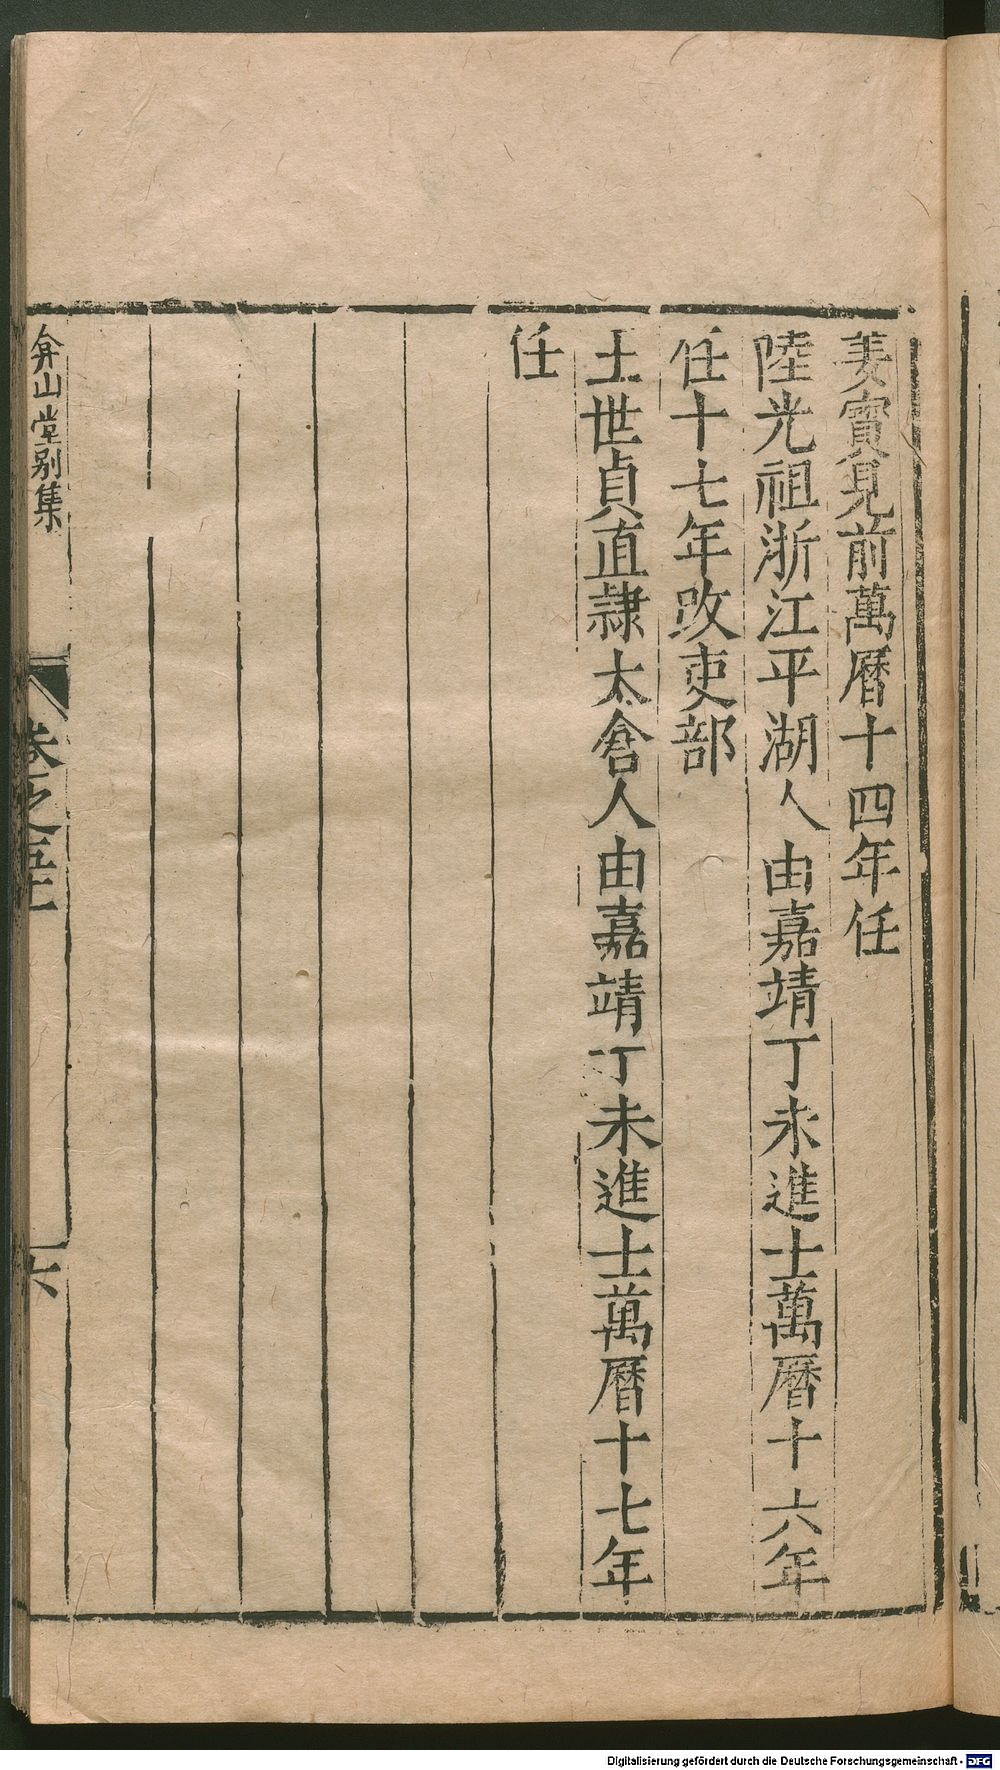 姜寳見前萬曆十四年任
陸光祖浙江平湖人由嘉靖丁未進士萬曆十六年
任十七年改吏部
王世貞直隸太倉人由嘉靖丁未進士萬曆十七年
任
弇山堂别集
卷之五十
六
Digitalisierung gefördert durch die Deutsche Forschungsgemeinschaft - DFG